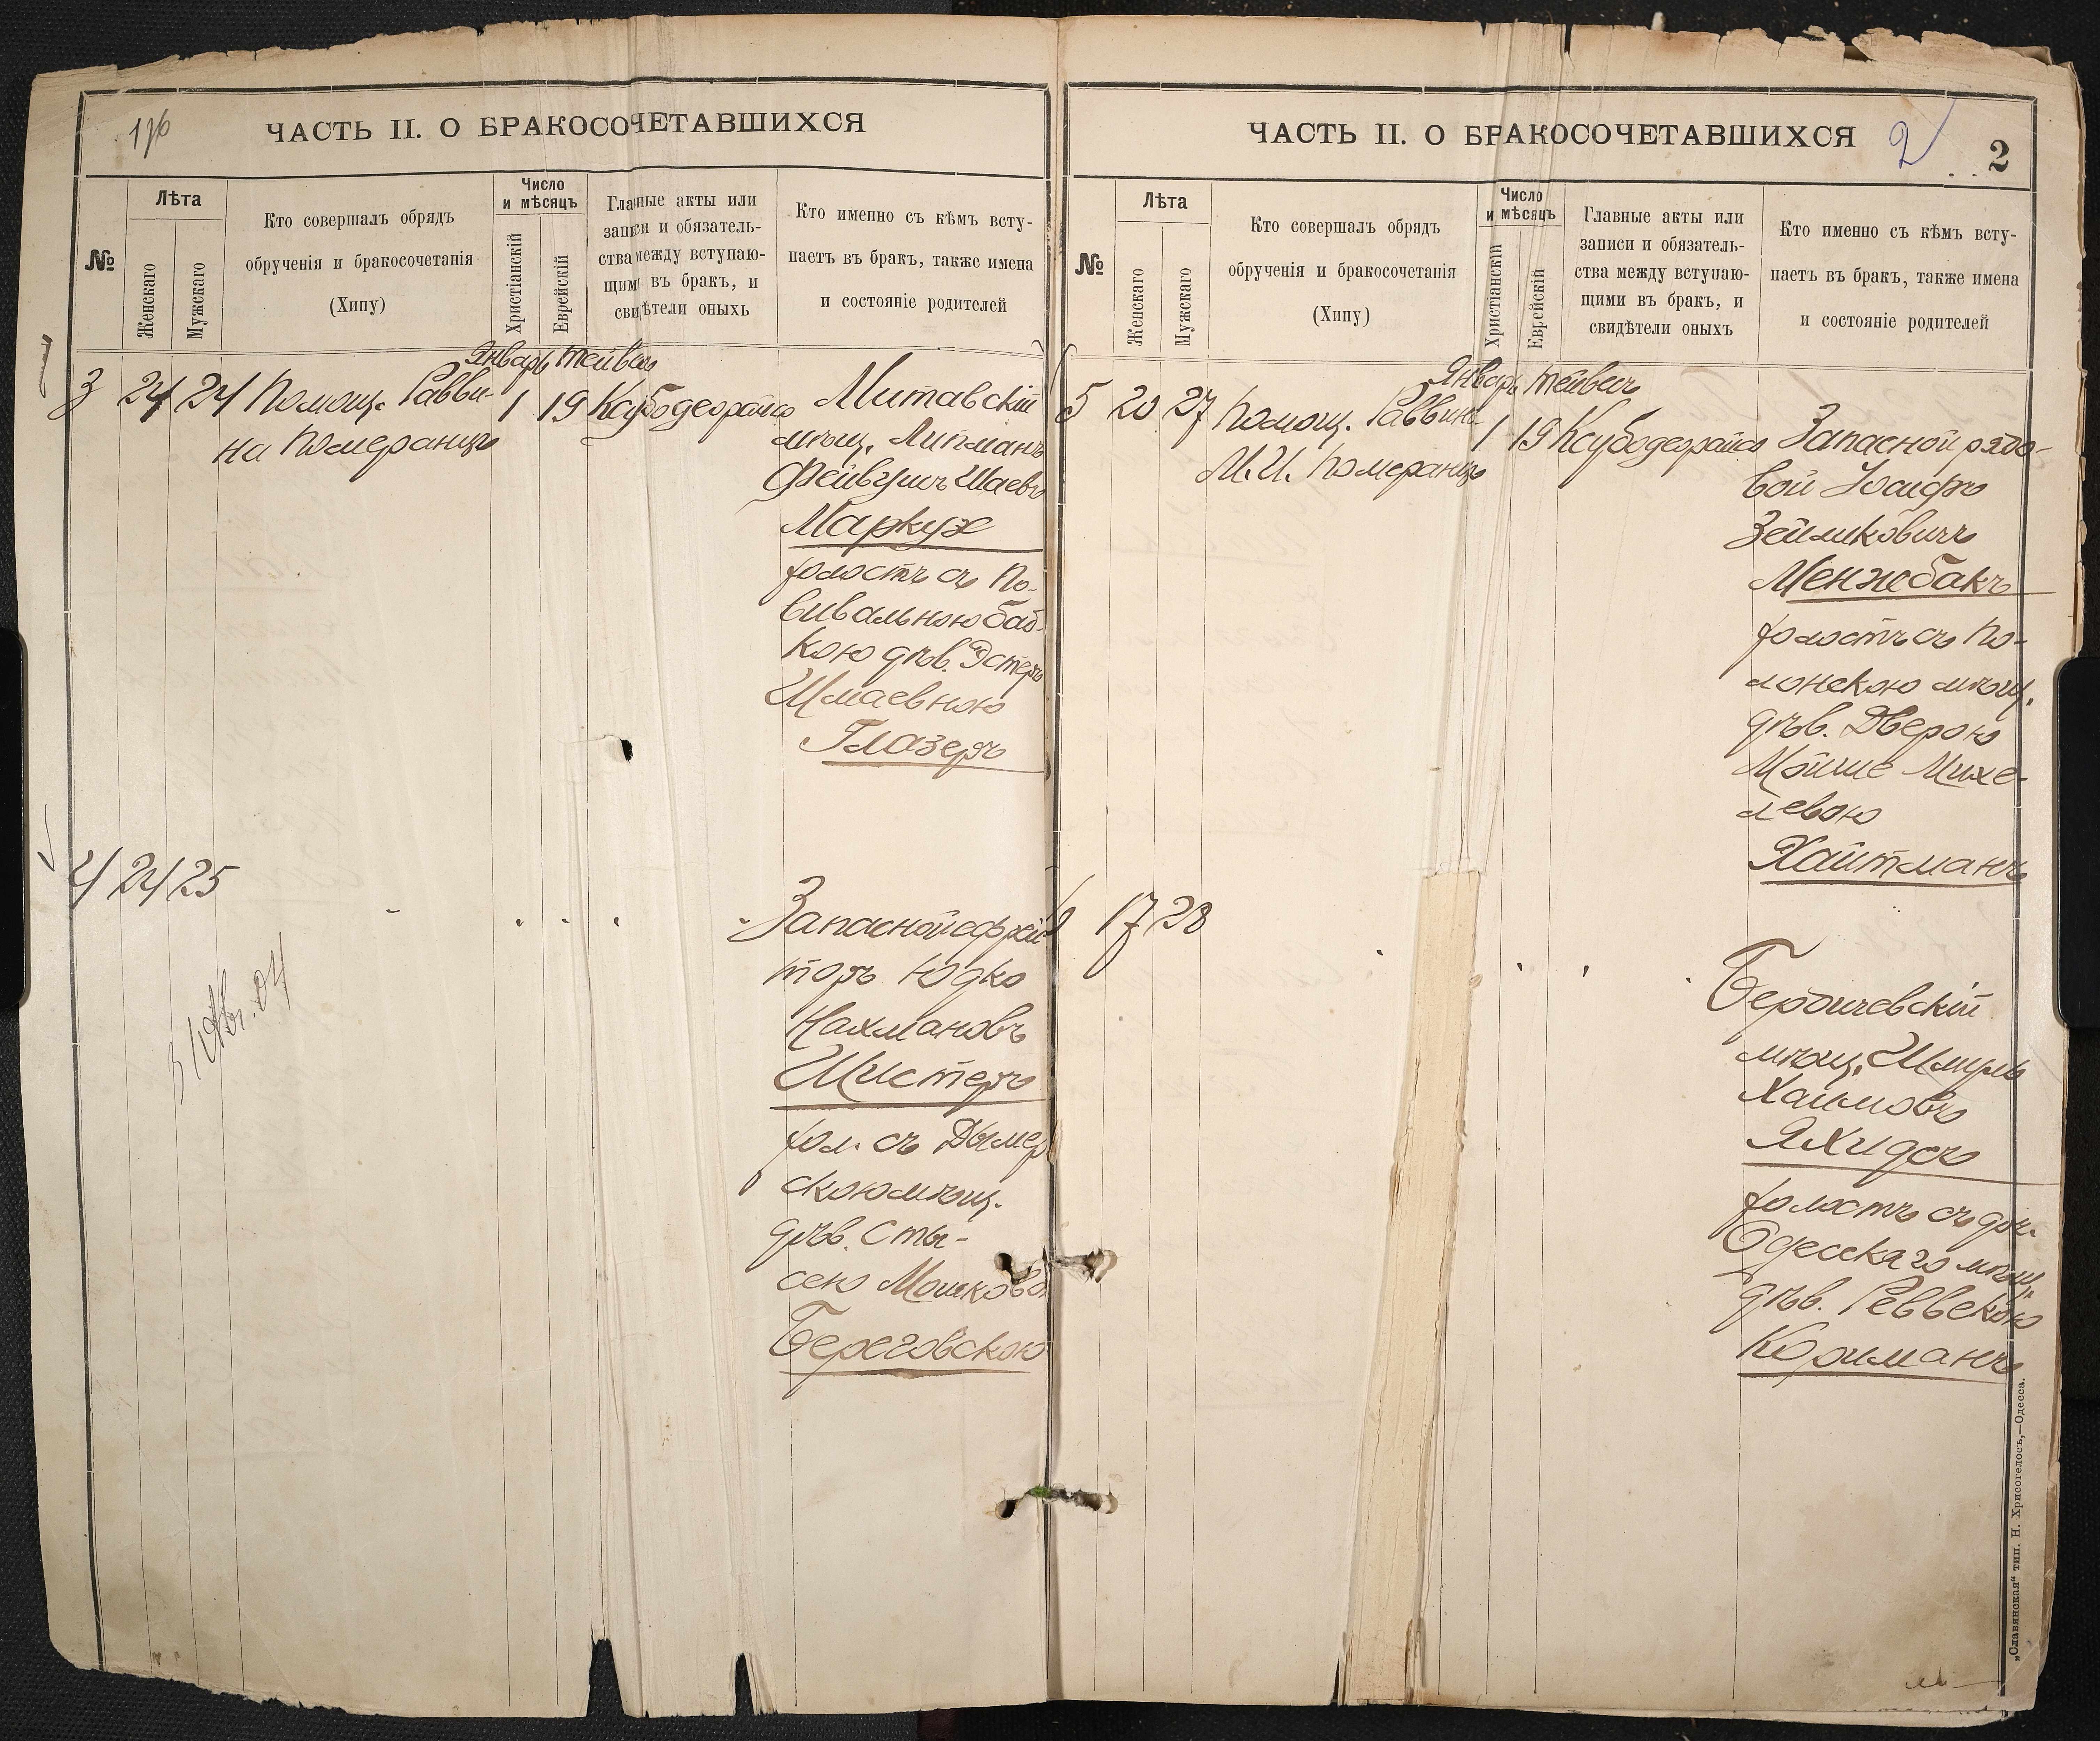 176
ЧАСТЬ II. О БРАКОСОЧЕТАВШИХСЯ
№
Лѣта
Женскаго
Мужскаго
Кто совершалъ обрядъ
обрученія и бракосочетанія
(Хипу)
Число
и мѣсяцъ
Христіанскій
Еврейскій
Главные акты или
записи и обязатель-
ства между вступаю-
щими въ бракъ, и
свидѣтели оныхъ
Кто именно съ кѣмъ всту-
паетъ въ бракъ, также имена
и состояніе родителей
Январь Тейвесъ
3 24 24 Помощ. Равви-
на Померанцъ
1 19 Ксубодеорайсо
Митавскій
мѣщ. Липманъ
Фейвушъ Шаевъ
Маркузе
холостъ съ По-
вивальною баб-
кою дѣв. Эстеръ
Шмаевною
Глазеръ
4 24 25
Запасной ефрей
торъ Юдко
Нахмановъ
Шистеръ
хол. съ Дымер
скою мѣщ.
дѣв. Сты-
сею Мошково
Береговскою
ЧАСТЬ II. О БРАКОСОЧЕТАВШИХСЯ
2
2
№
Лѣта
Женскаго
Мужскаго
Кто совершалъ обрядъ
обрученія и бракосочетанія
(Хипу)
Число
и мѣсяцъ
Христіанскій
Еврейскій
Главные акты или
записи и обязатель-
ства между вступаю-
щими въ бракъ, и
свидѣтели оныхъ
Кто именно съ кѣмъ всту-
паетъ въ бракъ, также имена
и состояніе родителей
Январь Тейвесъ
5 20 27 Помощ. Раввина
М.И. Померанцъ
1 19 Ксубодеорайсо
Запасной рядо-
вой Іосифъ
Зейликовичъ
Менжебакъ
холостъ съ По-
лонскою мѣщ.
дѣв. Дверою
Мойше Михе-
левою
Хайтманъ
6 17 28
Бердичевскій
мѣщ. Шмуль
Хаимовъ
Яхидсъ
холостъ съ доч.
Одесскаго мѣщ.
дѣв. Реввекою
Кориманъ
„Славянская“ тип. Н. Хрисогелосъ,—Одесса.